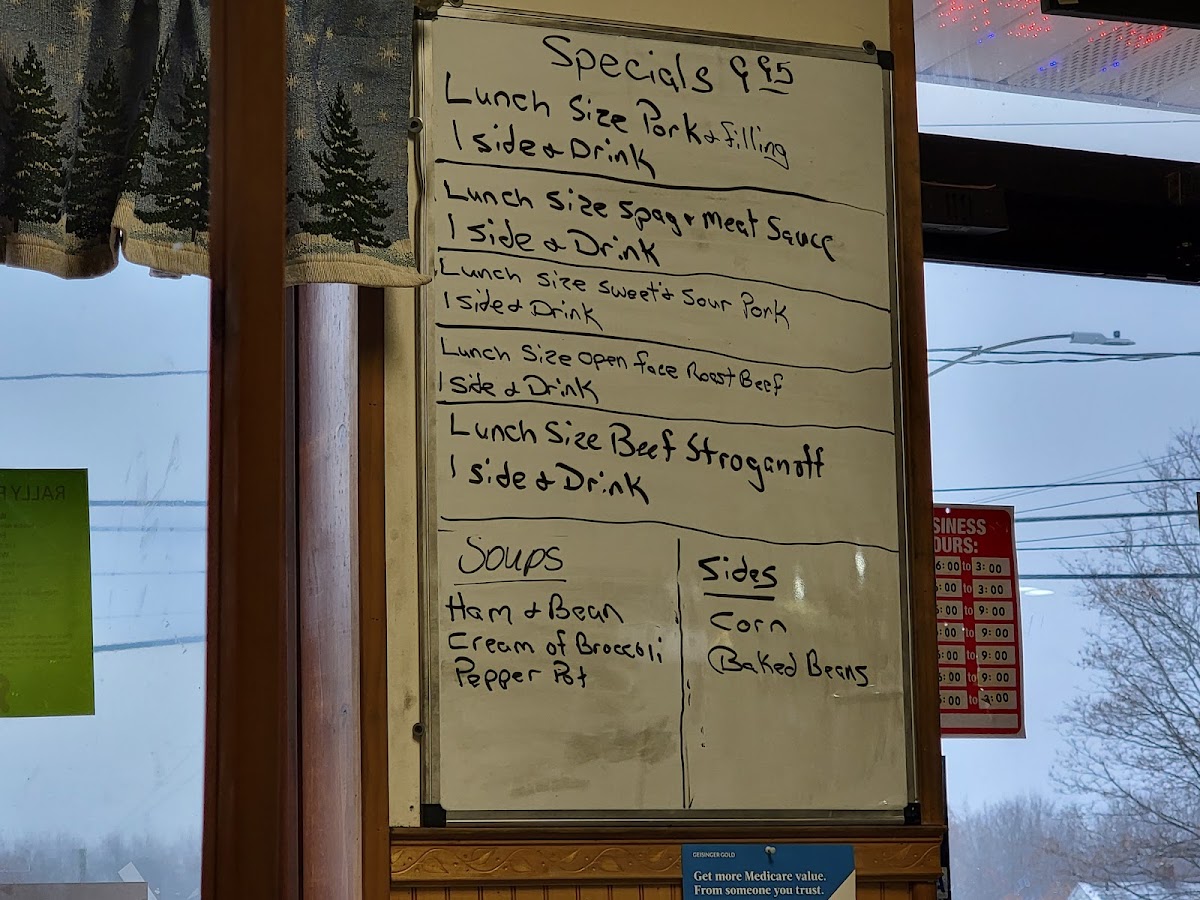 Specials 995
Lunch Size Pork & filling
1 side & Drink
Lunch Size Spag & Meat Sauce
1 side & Drink
Lunch Size Sweet & Sour Pork
1 side & Drink
Lunch Size Open face Roast Beef
1 side & Drink
Lunch Size Beef Stroganoff
1 side & Drink
Soups
Ham & Bean
Cream of Broccoli
Pepper Pot
Sides
Corn
Baked Beans
SINESS
OURS:
6:00 to 3:00
:00 to 3:00
:00 to 9:00
:00 to 9:00
:00 to 9:00
:00 to 9:00
:00 to 3:00
RALLY
GEISINGER GOLD
Get more Medicare value.
From someone you trust.